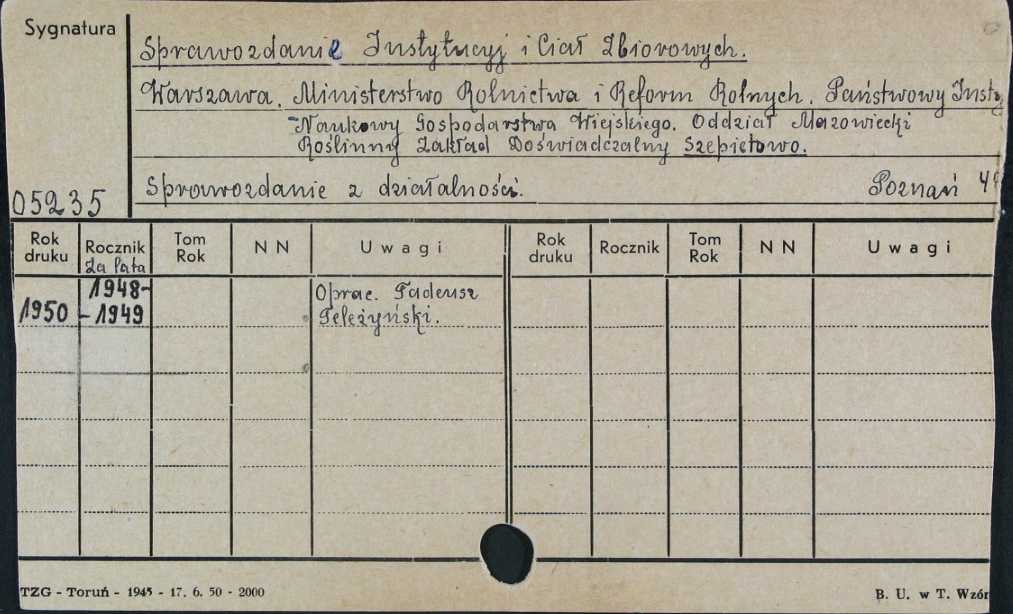 Sygnatura
Sprawozdanie Instytucyj i Ciał Zbiorowych.
Warszawa. Ministerstwo Rolnictwa i Reform Rolnych. Państwowy Insty
Naukowy Gospodarstwa Wiejskiego. Oddział Mazowiecki
Roślinny Zakład Doświadczalny Szepietowo.
05235
Sprawozdanie z działalności. Poznań
Rok druku Rocznik Za lata Tom Rok N N Uwagi Rok druku Rocznik Tom Rok N N Uwagi
1948-
1950 -1949
Oprac. Tadeusz
Peleżyński.
TZG - Toruń - 1945 - 17. 6. 50 - 2000 B. U. w T. Wzór